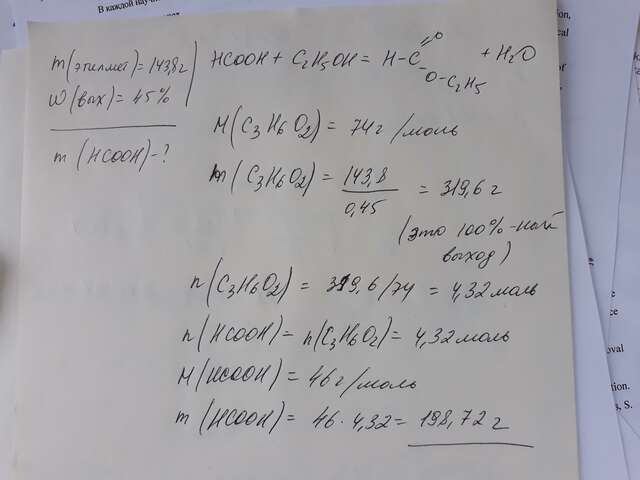 В каждой научн
m(этилмет)=143,8г
W(вых)=45%
m(HCOOH)-?
HCOOH + C2H5OH = H-C=O-O-C2H5 + H2O
M(C3H6O2) = 74г/моль
m(C3H6O2) = 143,8/0,45 = 319,6 г
(это 100%-ный
выход)
n(C3H6O2) = 319,6/74 = 4,32 моль
n(HCOOH) = n(C3H6O2) = 4,32 моль
M(HCOOH) = 46 г/моль
m(HCOOH) = 46 · 4,32 = 198,72 г